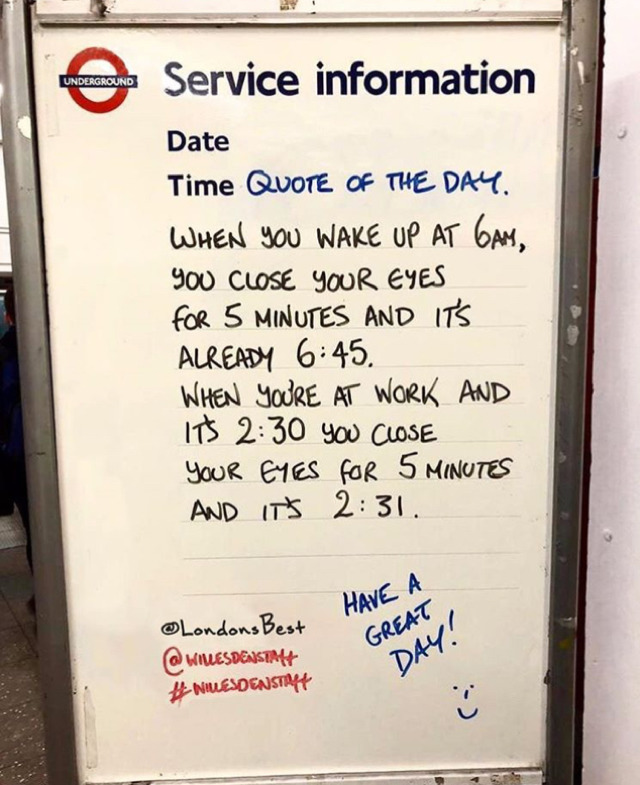 UNDERGROUND
Service information
Date
Time QUOTE OF THE DAY.
WHEN YOU WAKE UP AT 6AM,
YOU CLOSE YOUR EYES
FOR 5 MINUTES AND IT'S
ALREADY 6:45.
WHEN YOU'RE AT WORK AND
IT'S 2:30 YOU CLOSE
YOUR EYES FOR 5 MINUTES
AND IT'S 2:31.
HAVE A
GREAT
DAY!
@LondonsBest
@WILLESDENSTAFF
#WILLESDENSTAFF